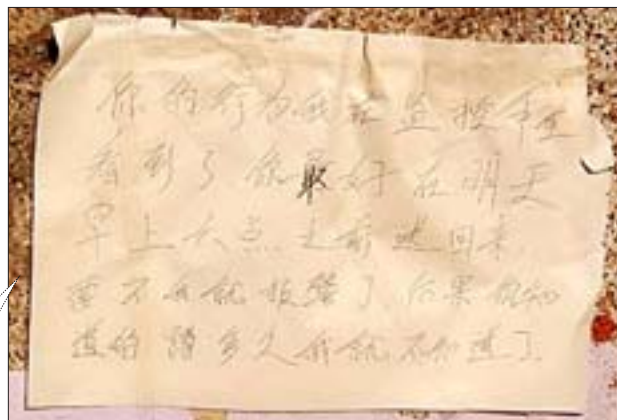 你的行为我在监控
看到了你最好在明天
早上六点之前送回来
要不我就报警了后果你知
道的 蹲多久我就不知道了